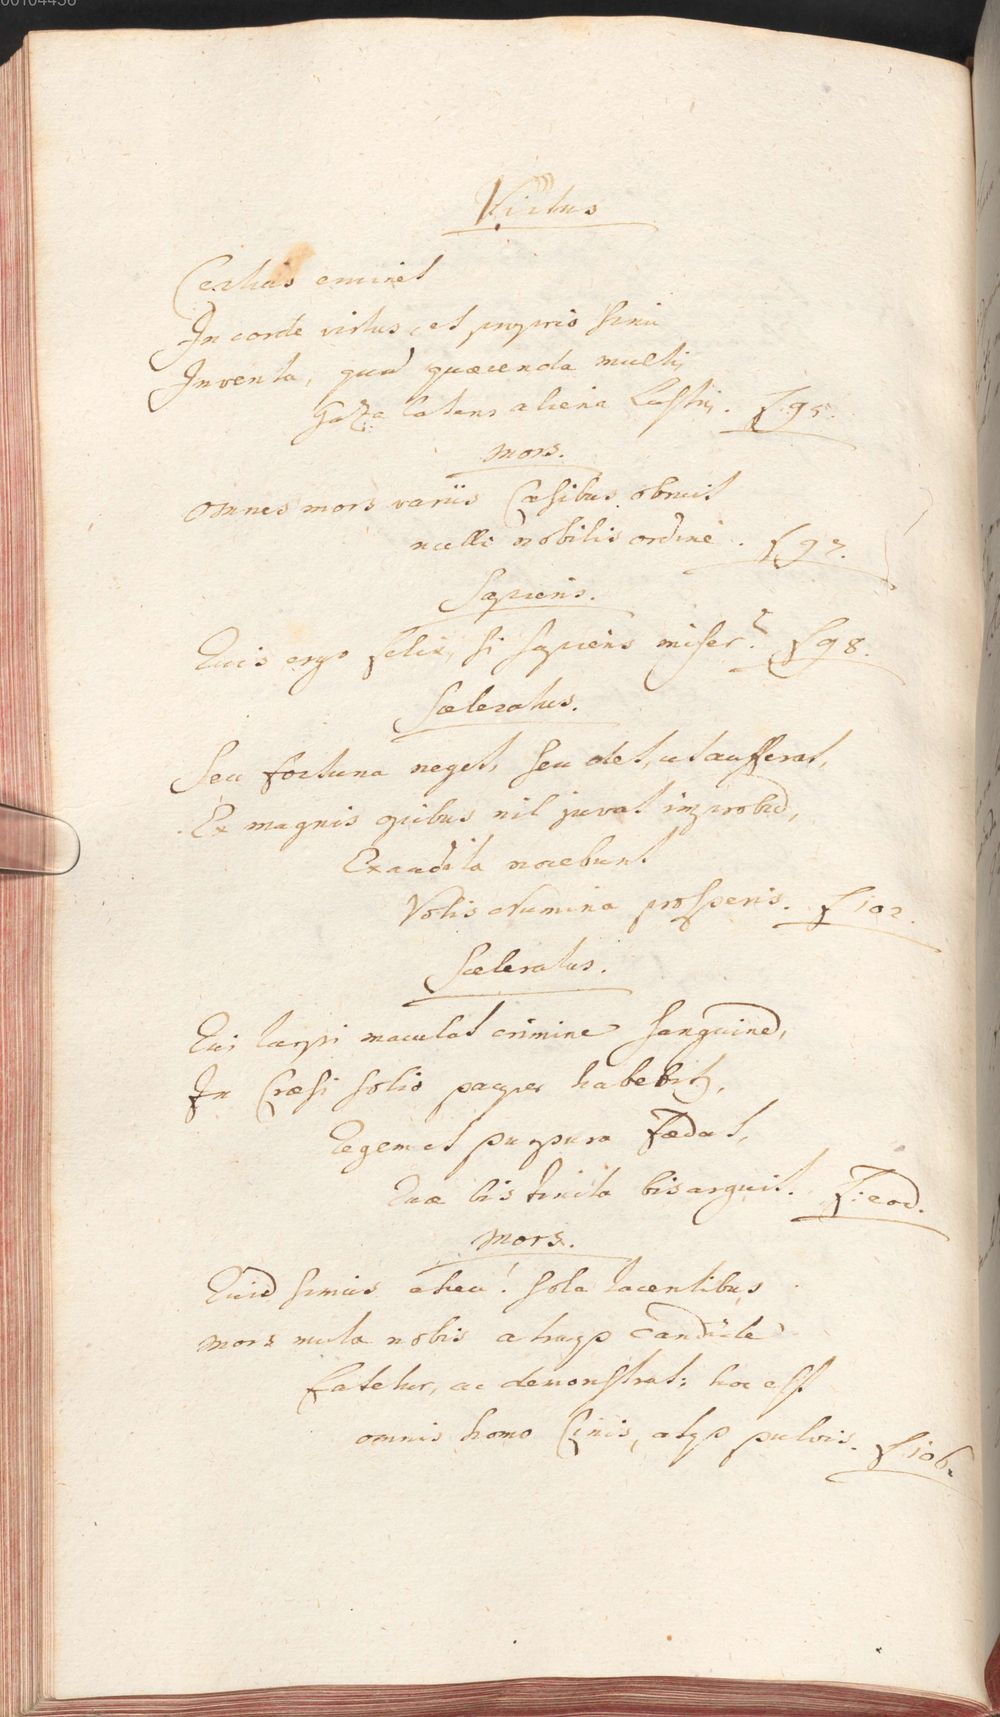 00104436
Virtus
Certius eminet
In corde virtus, et proprio sinu
Inventa, quam quaerenda multis
Gaza latens aliena lustris. f 95.
mors.
omnes mors variis Casibus obruit
nulli nobilis ordine. f 97.
Sapiens.
Quis ergo felix, si sapiens miser? f 98.
Sceleratus.
Seu fortuna neget, seu det, ut aufferat,
Ex magnis opibus nil juvat improbū,
Exaudita nocebunt
Votis Numina prosperis. f 102.
Sceleratus.
Qui turpi maculat crimine sanguinē,
In Croesi solio pauper habebitꝫ,
Regem et purpura foedat,
Quae bis tincta bis arguit. f: eod.
mors.
Quid simus eheu! sola tacentibus
mors muta nobis atque candide
fatetur, ac demonstrat: hoc est
omnis homo Cinis, atqꝫ pulvis. f 106.